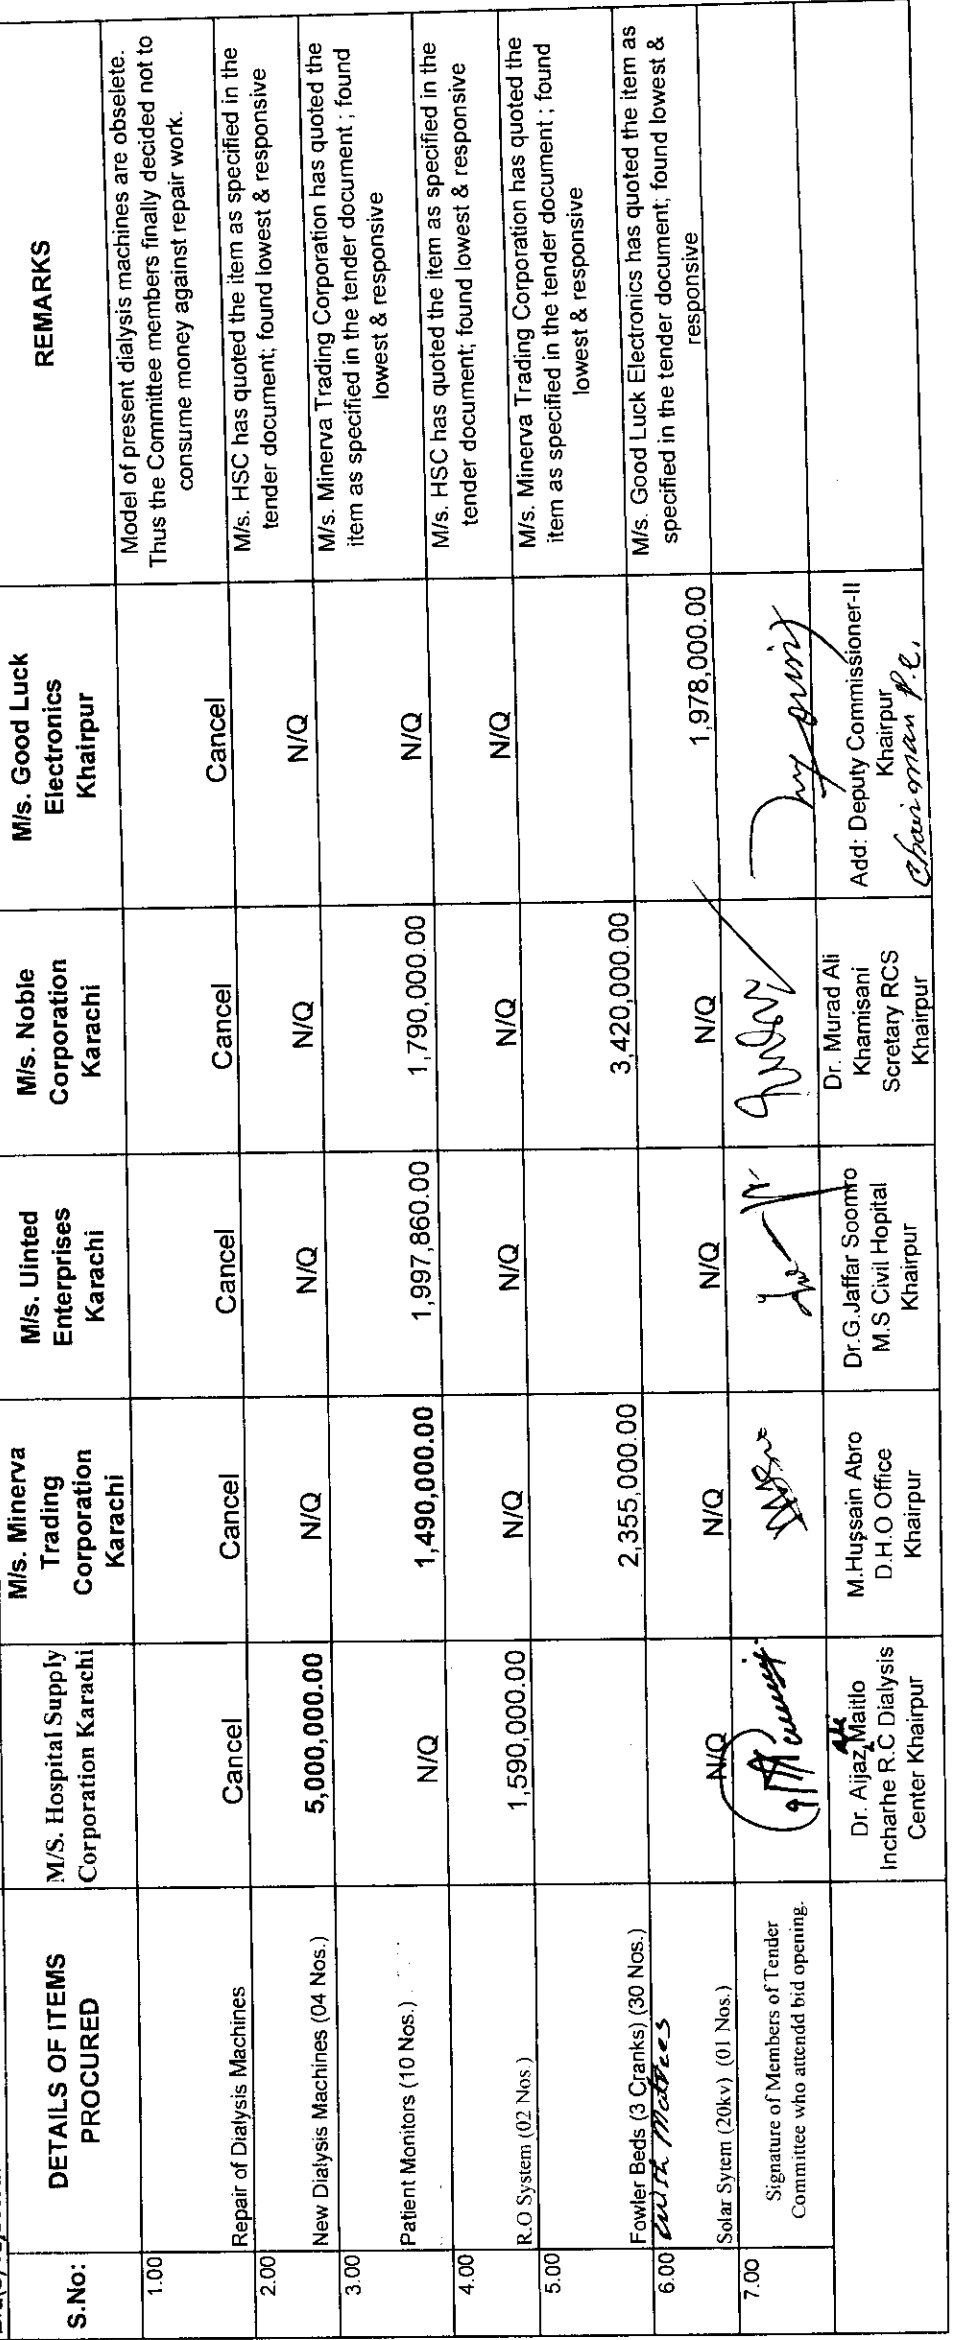 S.No:
DETAILS OF ITEMS
PROCURED
M/S. Hospital Supply
Corporation Karachi
M/s. Minerva
Trading
Corporation
Karachi
M/s. Uinted
Enterprises
Karachi
M/s. Noble
Corporation
Karachi
M/s. Good Luck
Electronics
Khairpur
REMARKS
1.00
Repair of Dialysis Machines
Cancel
Cancel
Cancel
Cancel
Cancel
Model of present dialysis machines are obselete.
Thus the Committee members finally decided not to
consume money against repair work.
2.00
New Dialysis Machines (04 Nos.)
5,000,000.00
N/Q
N/Q
N/Q
N/Q
M/s. HSC has quoted the item as specified in the
tender document; found lowest & responsive
3.00
Patient Monitors (10 Nos.)
N/Q
1,490,000.00
1,997,860.00
1,790,000.00
N/Q
M/s. Minerva Trading Corporation has quoted the
item as specified in the tender document ; found
lowest & responsive
4.00
R.O System (02 Nos.)
1,590,000.00
N/Q
N/Q
N/Q
N/Q
M/s. HSC has quoted the item as specified in the
tender document; found lowest & responsive
5.00
Fowler Beds (3 Cranks) (30 Nos.)
with Matrees
2,355,000.00
3,420,000.00
M/s. Minerva Trading Corporation has quoted the
item as specified in the tender document ; found
lowest & responsive
6.00
Solar Sytem (20kv) (01 Nos.)
N/Q
N/Q
N/Q
N/Q
1,978,000.00
M/s. Good Luck Electronics has quoted the item as
specified in the tender document; found lowest &
responsive
7.00
Signature of Members of Tender
Committee who attendd bid opening.
Dr. Aijaz Maitlo
Incharhe R.C Dialysis
Center Khairpur
M.Hussain Abro
D.H.O Office
Khairpur
Dr.G.Jaffar Soomro
M.S Civil Hopital
Khairpur
Dr. Murad Ali
Khamisani
Scretary RCS
Khairpur
Add: Deputy Commissioner-II
Khairpur
Chairman P.C.